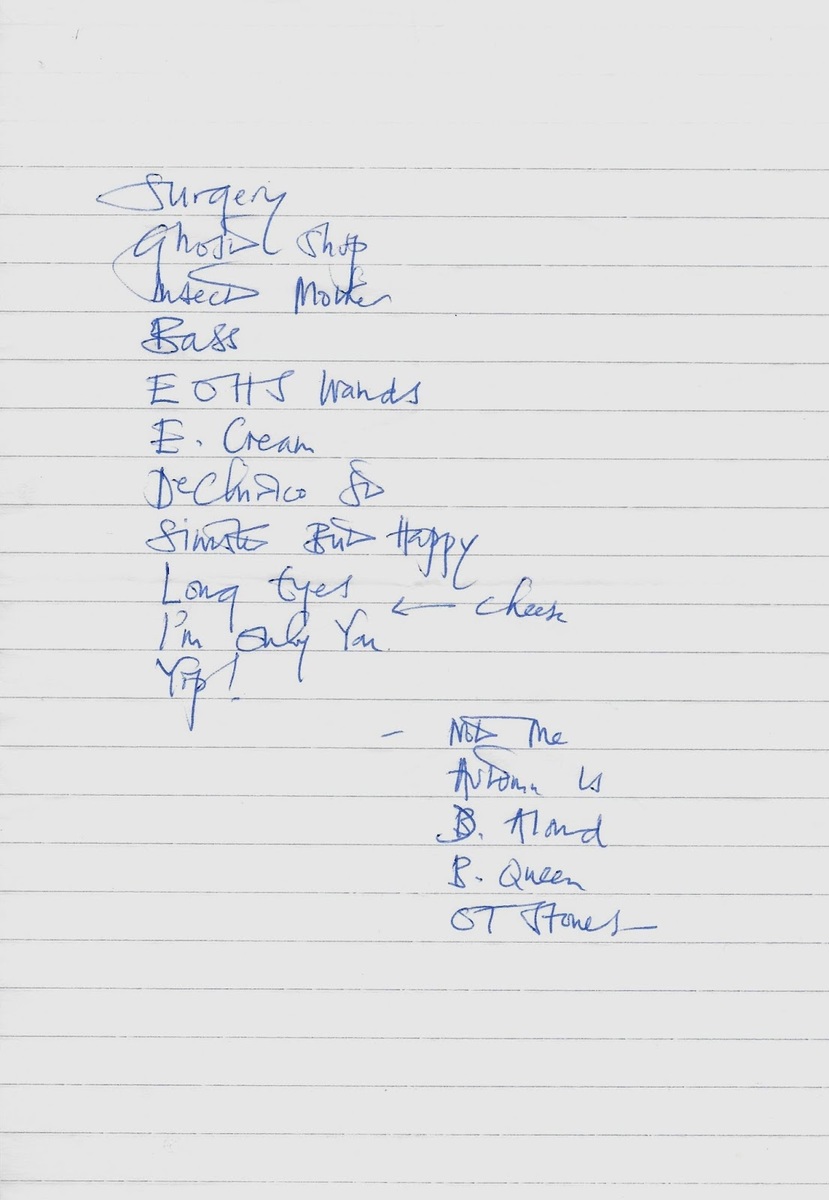 Surgery
Ghost Ship
Insect Mother
Bass
Wands
E. Cream
DeChirico St
Sinister But Happy
Long Eyes
← Cheese
I'm Only You
Yip!
- Not Me
Autumn Is
B. Aloud
B. Queen
OT Stones